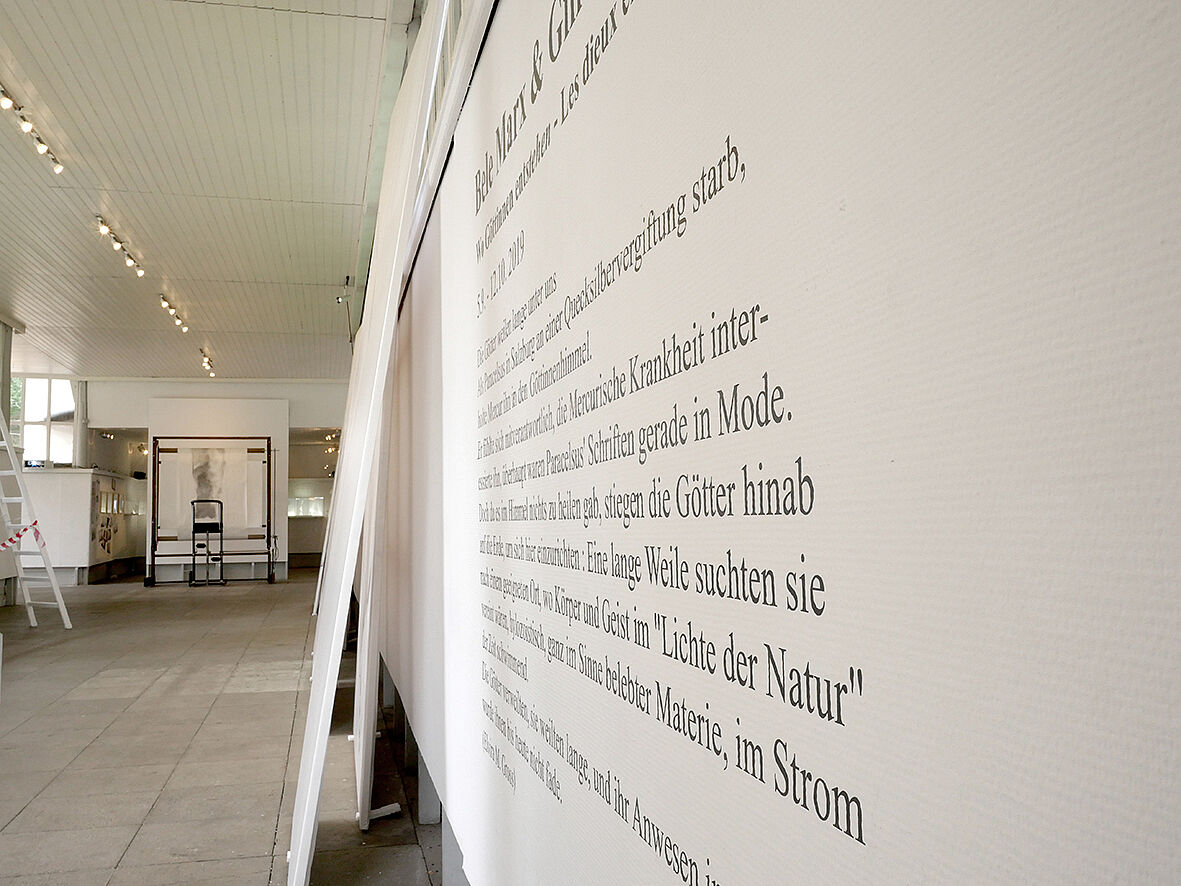 Bele Marx & Gil
Wo Göttinnen entstehen - Les dieux
5.9. - 12.10. 2019
Die Götter weilen lange unter uns
Als Paracelsus in Salzburg an einer Quecksilbervergiftung starb,
holte Mercur ihn in den Göttinnenhimmel.
Er fühlte sich mitverantwortlich, die Mercurische Krankheit inter-
essierte ihn, überhaupt waren Paracelsus' Schriften gerade in Mode.
Doch da es im Himmel nichts zu heilen gab, stiegen die Götter hinab
auf die Erde, um sich hier einzurichten : Eine lange Weile suchten sie
nach einem geeigneten Ort, wo Körper und Geist im "Lichte der Natur"
vereint wären, hylozoistisch, ganz im Sinne belebter Materie, im Strom
der Zeit schwimmend.
Die Götter verweilten, sie weilten lange, und ihr Anwesen in
wurde ihnen bis heute nicht fade.
M. Gross)